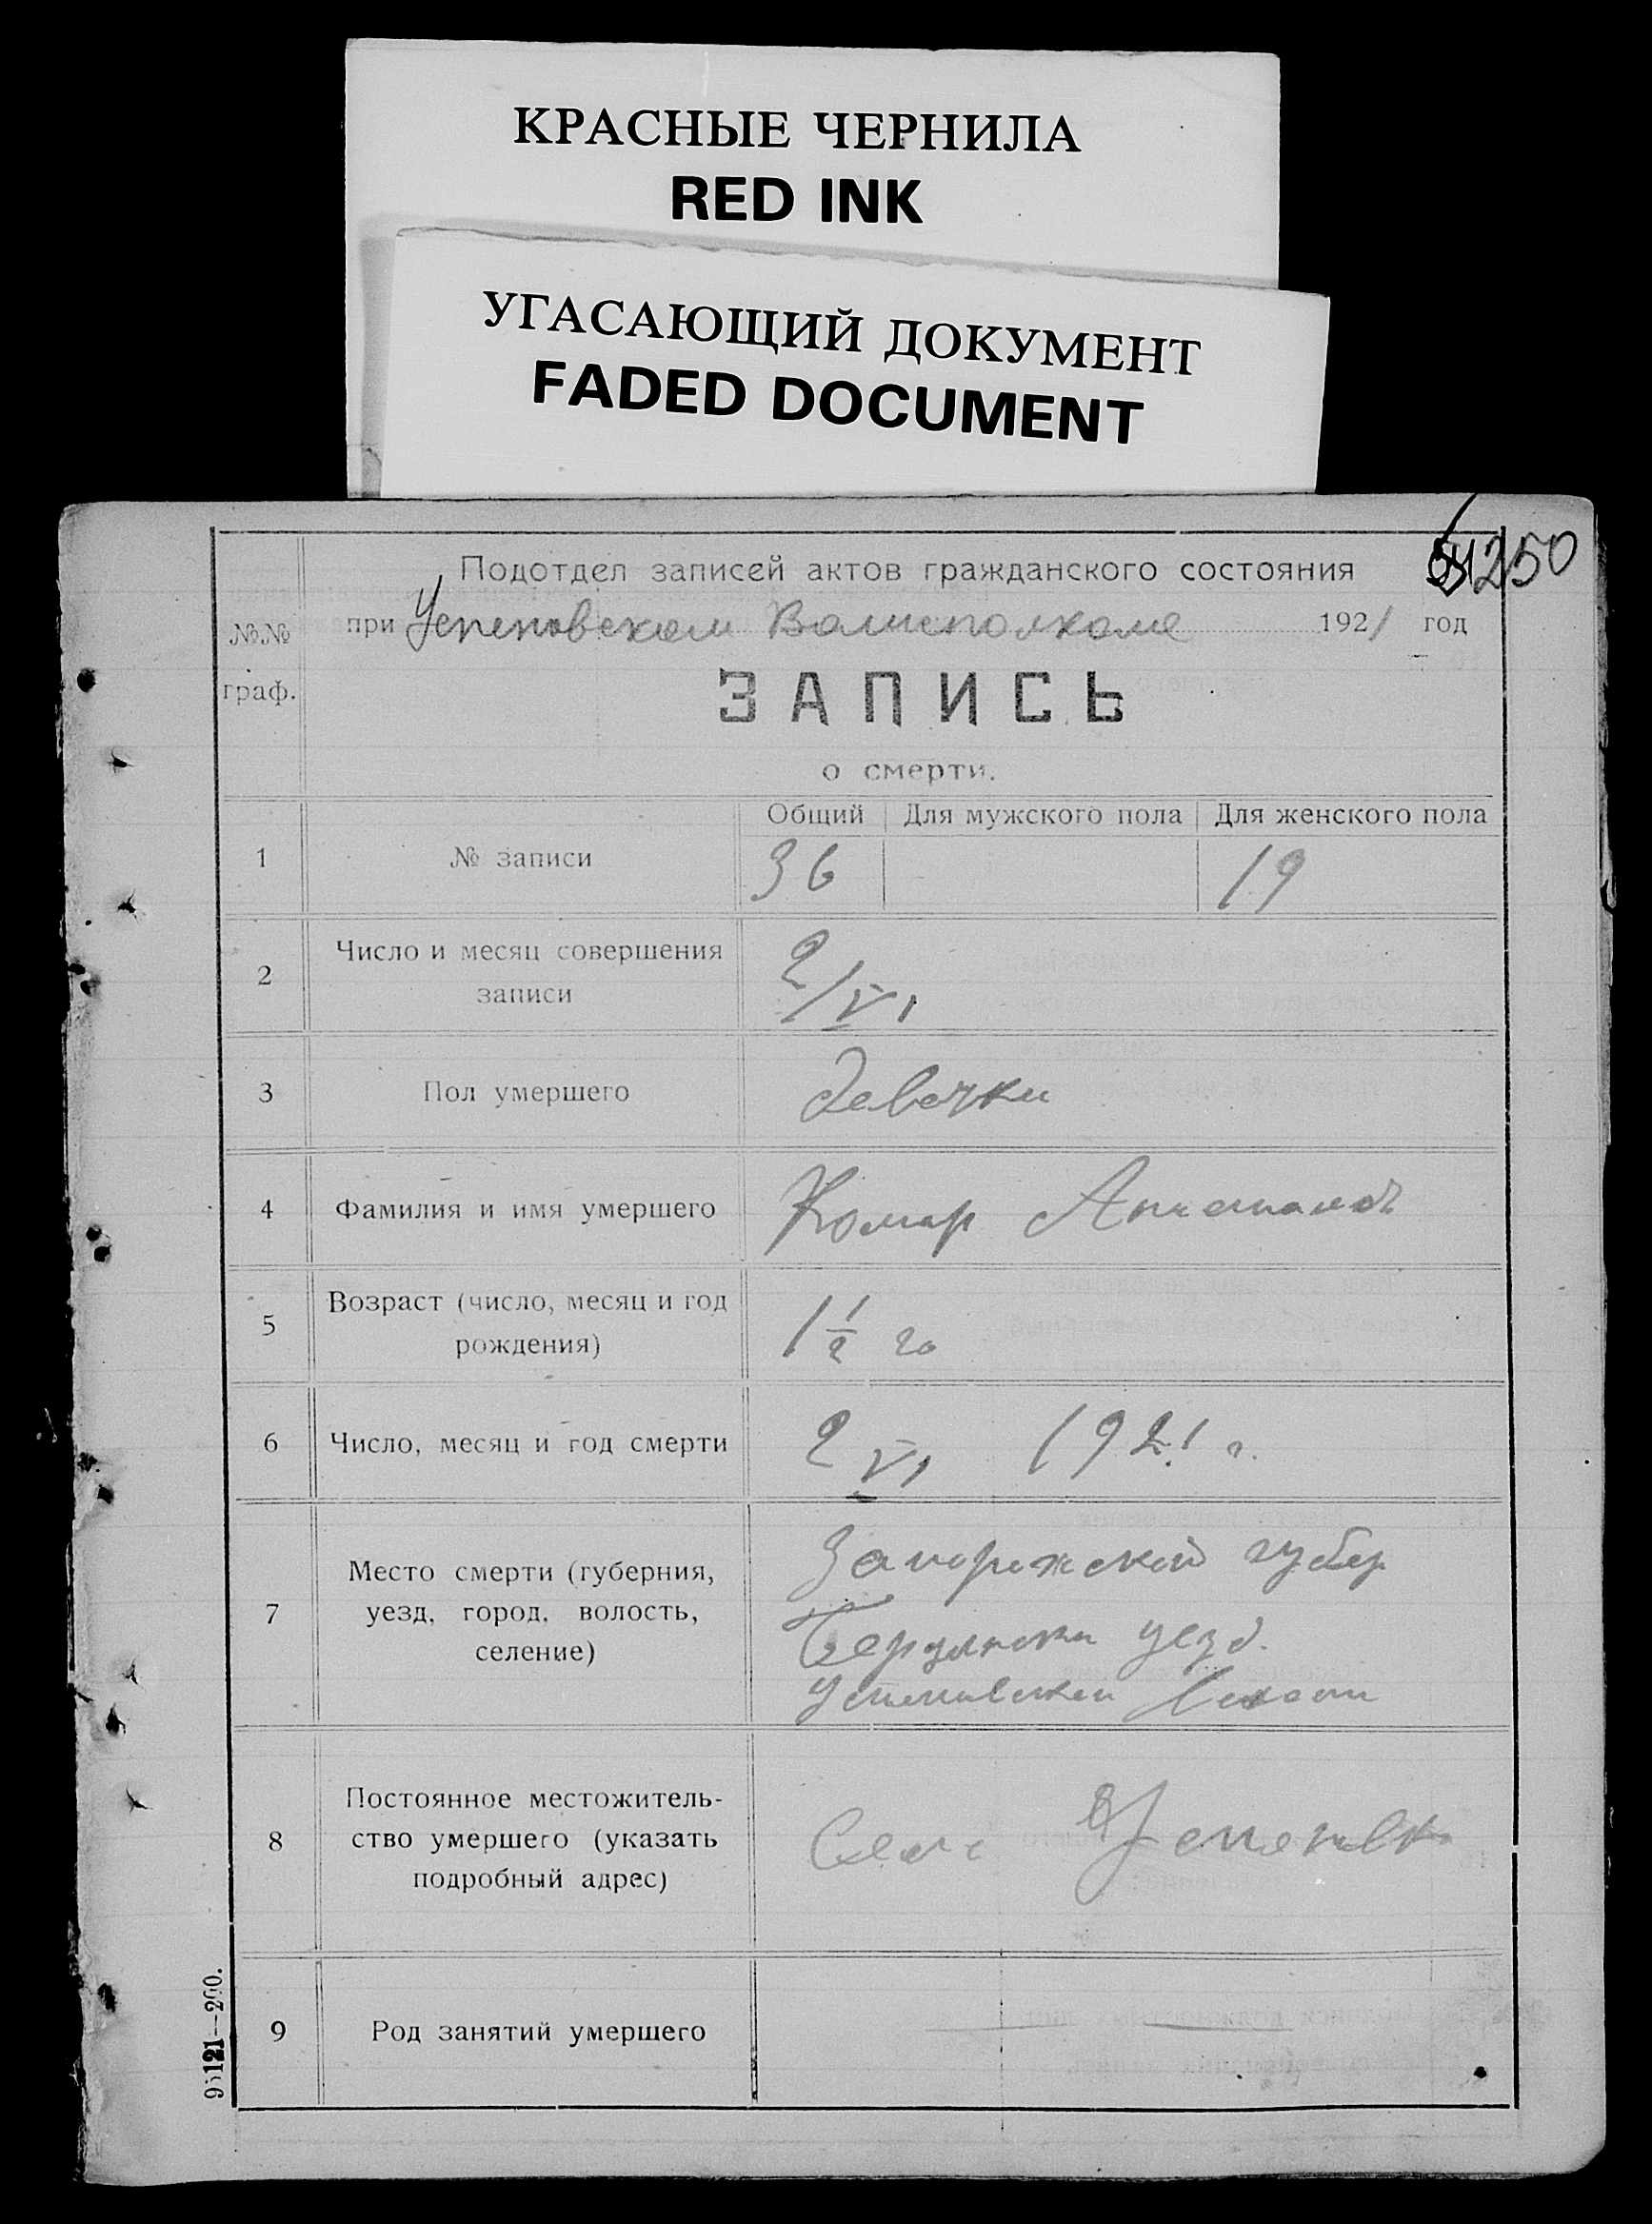 КРАСНЫЕ ЧЕРНИЛА
RED INK
УГАСАЮЩИЙ ДОКУМЕНТ
FADED DOCUMENT
250
Подотдел записей актов гражданского состояния
№№ граф.
при Успеновском Волисполкоме 1921 год
ЗАПИСЬ
о смерти.
Общий Для мужского пола Для женского пола
1 № записи 36 19
2 Число и месяц совершения записи 2/VI
3 Пол умершего девочки
4 Фамилия и имя умершего Комар
5 Возраст (число, месяц и год рождения) 1 1/2 го
6 Число, месяц и год смерти 2 VI 1921 г.
7 Место смерти (губерния, уезд, город, волость, селение) Запорожской губер
Бердянски уезд.
8 Постоянное местожитель-
ство умершего (указать
подробный адрес)
Село
9 Род занятий умершего